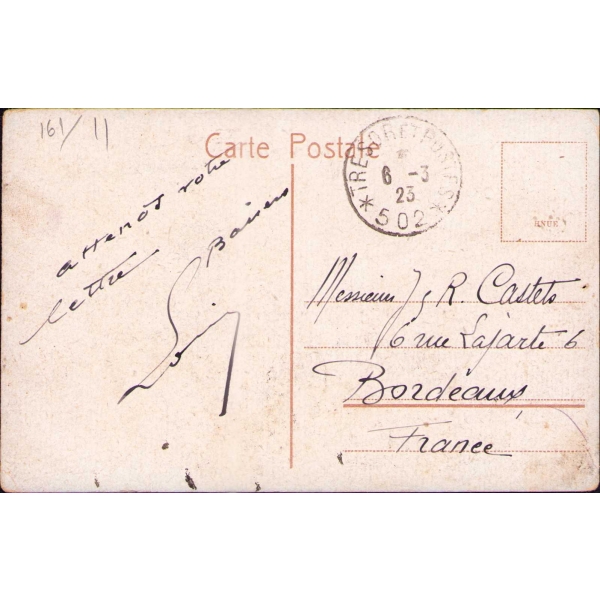 161/11
Carte Postale
TRESOR ET POSTES
6 -3
23
* 502 *
attends votre
lettre
Baisers
Messieurs J & R. Castets
6 rue Lajarte 6
Bordeaux
France